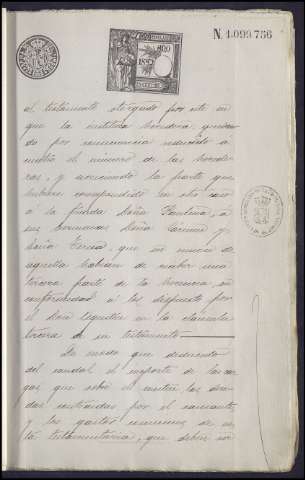 N. 1.099.756
el testamento otorgado por este en
que la instituia heredera, quedan
do por consecuencia reducido a
cuatro el número de las herede
ras, y acreciendo la parte que
hubiera correspondido en otro caso
á la finada Doña Plantina, á
sus hermanas Doña Carmen y
Doña Teresa, que en union de
aquella habian de recibir una
tercera parte de la herencia en
conformidad á lo dispuesto por
el Don en la cláusula
tercera de su testamento
De modo que deducido
del caudal el importe de las car
gas que sobre el mismo las deu
das contraidas por el causante,
y los gastos comunes de es
ta testamentaria, que deben ser